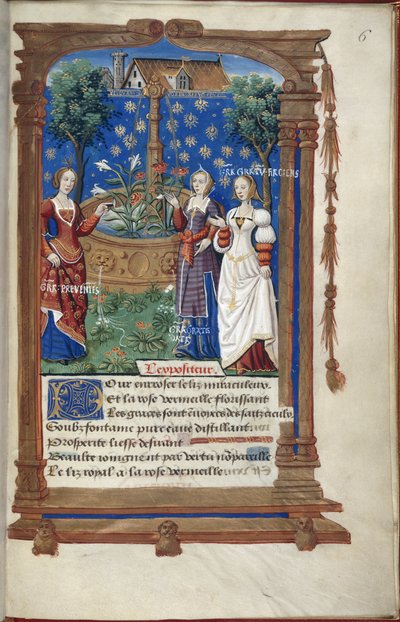 6
GRE GRATV FACIENS
GRE PREVENTES
GRE GRATE
DATE
L'expositeur.
Pour enroser le liz miraculeux
Et la rose vermeille florissant
Les graces sont envoyes des saitz cieulx
Soubz fontaine pure eaue distillant
Prosperite liesse desirant
Beaulte ioingnent par vertu nōpareille
Le liz royal a la rose vermeille